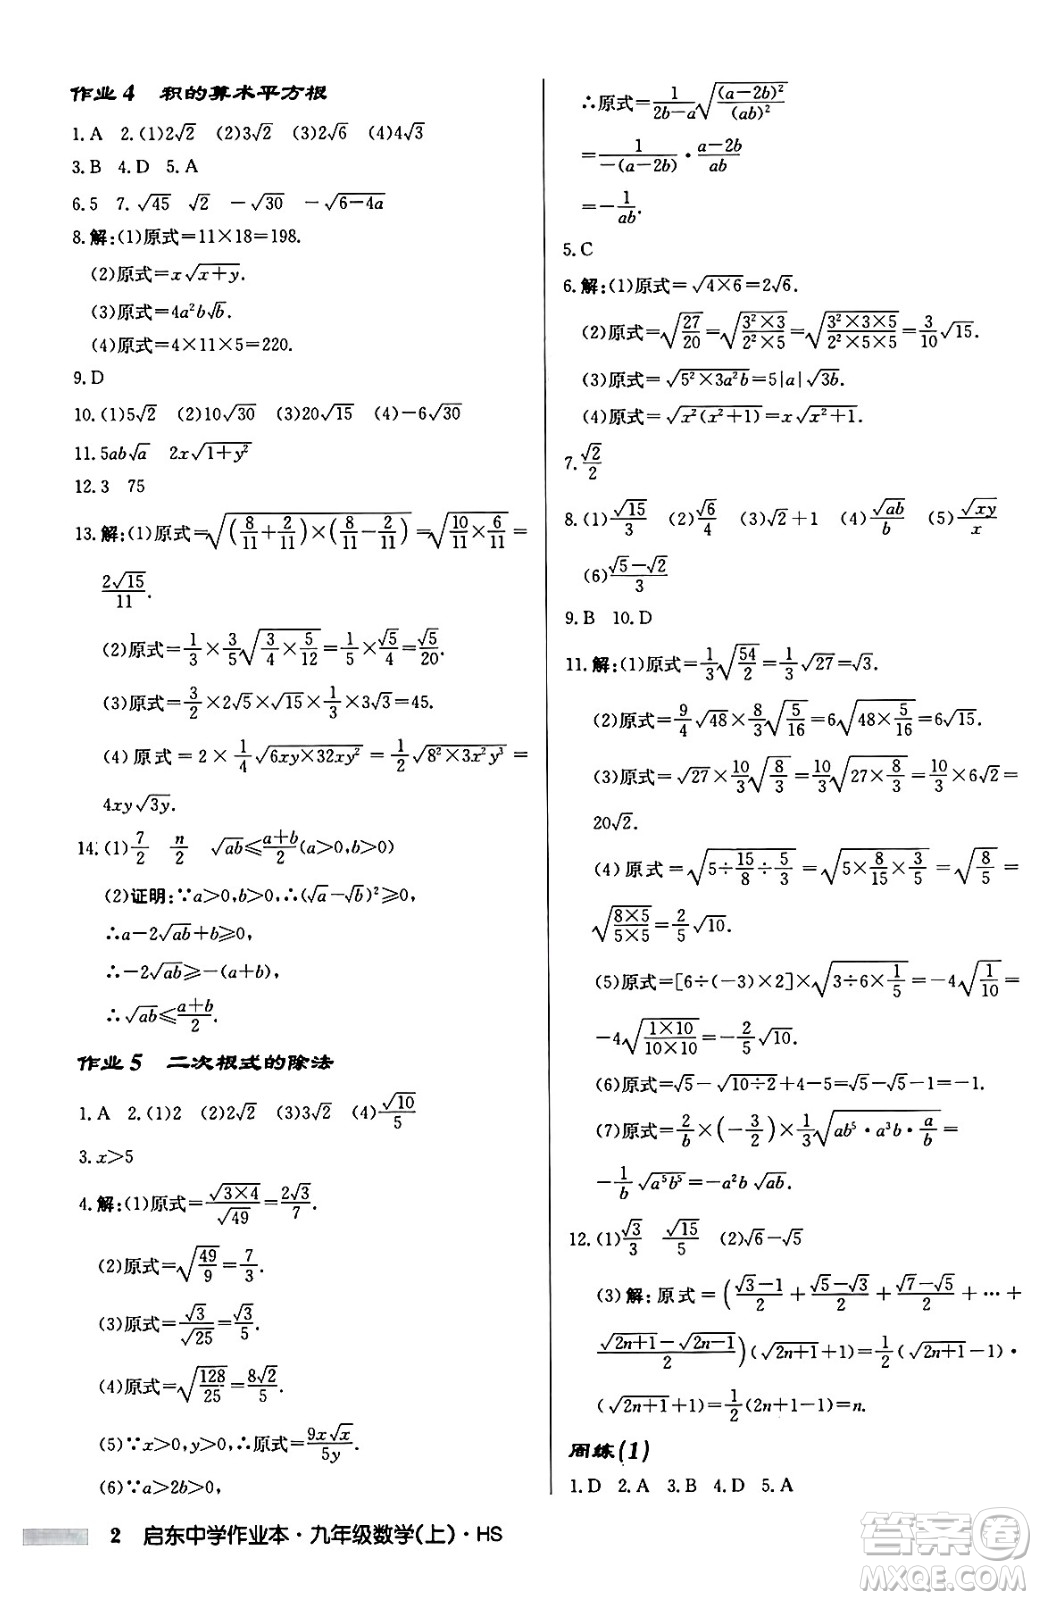 作业 4 积的算术平方根
1.A 2.(1)2√2 (2)3√2 (3)2√6 (4)4√3
3.B 4.D 5.A
6.5 7.√45 √2 －√30 －√(6－4a)
8.解:(1)原式=11×18=198.
(2)原式=x√(x+y).
(3)原式=4a²b√b.
(4)原式=4×11×5=220.
9.D
10.(1)5√2 (2)10√30 (3)20√15 (4)－6√30
11.5ab√a 2x√(1+y²)
12.3 75
13.解:(1)原式=√((8/11+2/11)×(8/11－2/11))=√(10/11×6/11)=
2√15/11.
(2)原式=1/3×3/5√(3/4×5/12)=1/5×√5/4=√5/20.
(3)原式=3/2×2√5×√15×1/3×3√3=45.
(4)原式=2×1/4√(6xy×32xy²)=1/2√(8²×3x²y³)=
4xy√(3y).
14.(1)7/2 n/2 √(ab)≤(a+b)/2(a>0,b>0)
(2)证明:∵a>0,b>0,∴(√a－√b)²≥0,
∴a－2√(ab)+b≥0,
∴－2√(ab)≥－(a+b),
∴√(ab)≤(a+b)/2.
作业 5 二次根式的除法
1.A 2.(1)2 (2)2√2 (3)3√2 (4)√10/5
3.x>5
4.解:(1)原式=√(3×4)/√49=2√3/7.
(2)原式=√(49/9)=7/3.
(3)原式=√3/√25=√3/5.
(4)原式=√(128/25)=8√2/5.
(5)∵x>0,y>0,∴原式=9x√x/5y.
(6)∵a>2b>0,
∴原式=1/(2b－a)√((a－2b)²/(ab)²)
=1/(－(a－2b))·(a－2b)/ab
=－1/ab.
5.C
6.解:(1)原式=√(4×6)=2√6.
(2)原式=√(27/20)=√((3²×3)/(2²×5))=√((3²×3×5)/(2²×5×5))=3/10√15.
(3)原式=√(5²×3a²b)=5|a|√(3b).
(4)原式=√(x²(x²+1))=x√(x²+1).
7.√2/2
8.(1)√15/3 (2)√6/4 (3)√2+1 (4)√(ab)/b (5)√(xy)/x
(6)(√5－√2)/3
9.B 10.D
11.解:(1)原式=1/3√(54/2)=1/3√27=√3.
(2)原式=9/4√48×8/3√(5/16)=6√(48×5/16)=6√15.
(3)原式=√27×10/3√(8/3)=10/3√(27×8/3)=10/3×6√2=
20√2.
(4)原式=√(5÷15/8÷5/3)=√(5×8/15×3/5)=√(8/5)=
√((8×5)/(5×5))=2/5√10.
(5)原式=[6÷(－3)×2]×√(3÷6×1/5)=－4√(1/10)=
－4√((1×10)/(10×10))=－2/5√10.
(6)原式=√5－√(10÷2)+4－5=√5－√5－1=－1.
(7)原式=2/b×(－3/2)×1/3√(ab⁵·a³b·a/b)=
－1/b√(a⁵b⁵)=－a²b√(ab).
12.(1)√3/3 √15/5 (2)√6－√5
(3)解:原式=((√3－1)/2+(√5－√3)/2+(√7－√5)/2+⋯+
(√(2n+1)－√(2n－1))/2)(√(2n+1)+1)=1/2(√(2n+1)－1)·
(√(2n+1)+1)=1/2(2n+1－1)=n.
周练(1)
1.D 2.A 3.B 4.D 5.A
2 启东中学作业本·九年级数学(上)·HS
答案圈
MXQE.COM